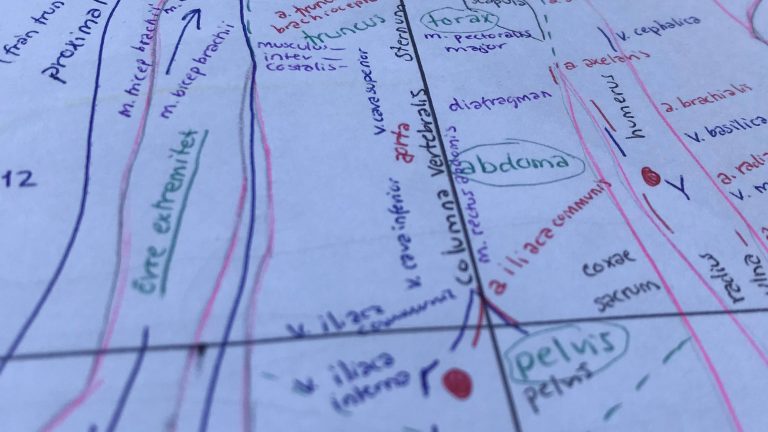 (från trun
proximal
m. tricep brachii
m. bicep brachii
a. trunc
brachiocep
truncus
musculus
inter
costalis
v. cava superior
sternum
torax
m. pectoralis
major
v. cephalica
a. axelaris
diafragman
humerus
a. brachialis
v. basilica
aorta
columna vertebralis
abdoma
m. rectus abdomis
a. radia
v. m
12
övre extremitet
v. cava inferior
a iliaca communis
coxae
sacrum
radius
ulna
v. iliaca
communis
v. iliaca
interna
pelvis
pelvis